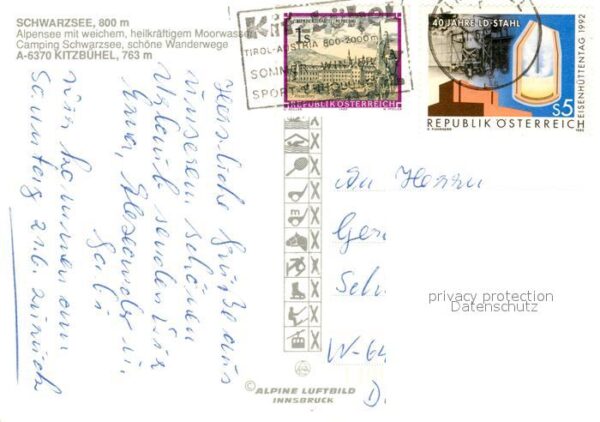 SCHWARZSEE, 800 m
Alpensee mit weichem, heilkräftigem Moorwasser
Camping Schwarzsee, schöne Wanderwege
A-6370 KITZBÜHEL, 763 m
Kitzbühel
TIROL-AUSTRIA 800-2000m
SOMMER WINTER
SPORT
1s
REPUBLIK ÖSTERREICH
40 JAHRE LD-STAHL
EISENHÜTTENTAG 1992
S5
REPUBLIK ÖSTERREICH
Herzliche Grüße aus
unserem schönen
Urlaub senden wir
Erna, Alexander u.
Gabi
Wir kommen am
Sonntag 21.6. zurück
An Herrn
Ger
Sch
W-64
D
privacy protection
Datenschutz
© ALPINE LUFTBILD
INNSBRUCK